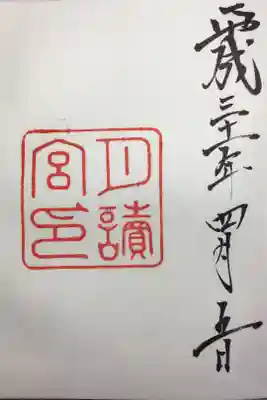 平成三十一年四月五日
月讀
宮印